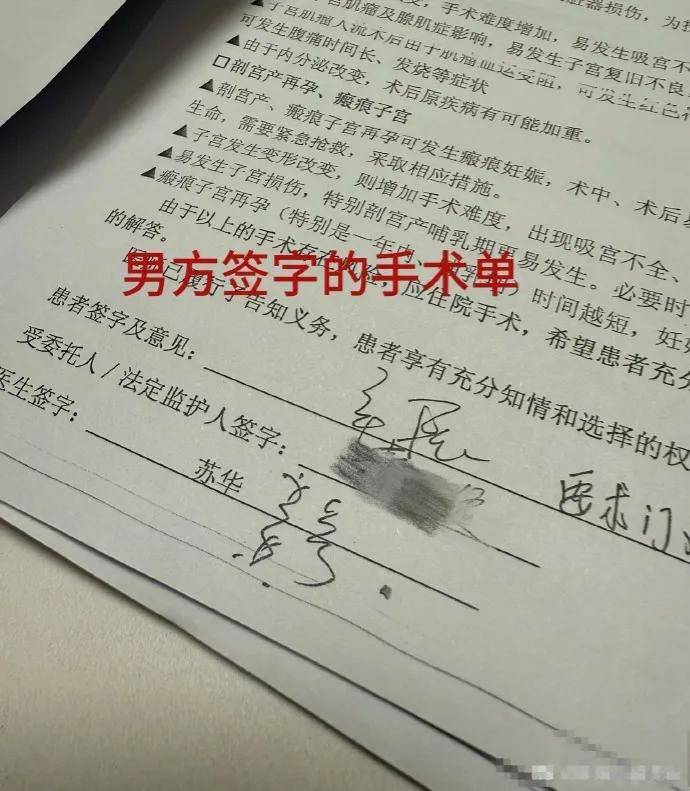 脏器损伤，为
宫肌瘤及腺肌症影响，手术难度增加，易发生吸宫不
▲子宫肌瘤人流术后由于肌瘤血运受阻，可发生红色
可发生腹痛时间长、发烧等症状 易发生子宫复旧不良
▲由于内分泌改变，术后原疾病有可能加重。
□剖宫产再孕、瘢痕子宫
▲剖宫产、瘢痕子宫再孕可发生瘢痕妊娠，术中、术后
生命，需要紧急抢救，采取相应措施。
▲子宫发生变形改变，则增加手术难度，出现吸宫不全、
▲易发生子宫损伤，特别剖宫产哺乳期更易发生。必要时
▲瘢痕子宫再孕（特别是一年内 时间越短，妊
由于以上的手术存在 应住院手术，希望患者充分
的解答。
男方签字的手术单
已履行了告知义务，患者享有充分知情和选择的权
患者签字及意见：
要求门
受委托人/法定监护人签字：
医生签字：
苏华